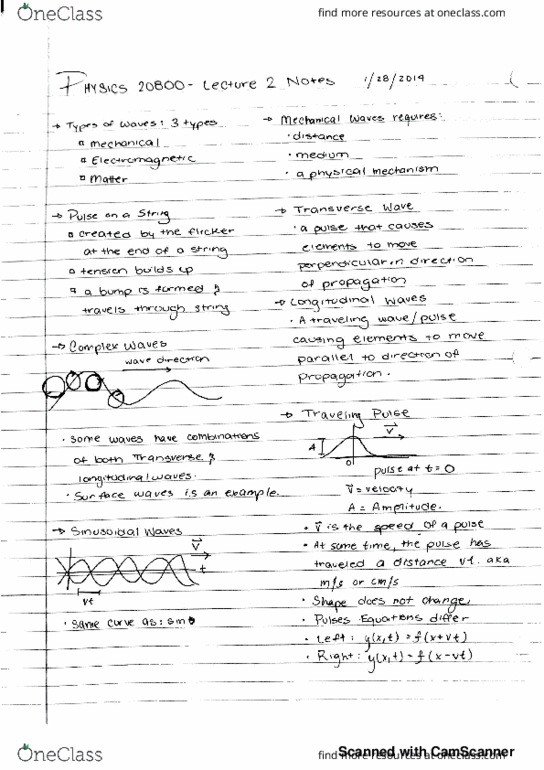 OneClass
find more resources at oneclass.com
PHYSICS 20800 - Lecture 2 Notes 1/28/2019
→ Types of waves: 3 types
▫ mechanical
▫ Electromagnetic
▫ Matter
→ Mechanical waves requires:
· distance
· medium
· a physical mechanism
→ Pulse on a String
▫ created by the flicker
at the end of a string
▫ tension builds up
▫ a bump is formed &
travels through string
→ Transverse Wave
· a pulse that causes
elements to move
perpendicular in direction
of propagation
→ Longitudinal Waves
· A traveling wave/pulse
causing elements to move
parallel to direction of
propagation.
→ Complex Waves
wave direction
· some waves have combinations
of both Transverse &
longitudinal waves.
· Surface waves is an example.
→ Sinusoidal Waves
v
t
vt
· Same curve as: sin θ
→ Traveling Pulse
v
A
0
pulse at t = 0
v = velocity
A = Amplitude.
· v is the speed of a pulse
· At some time, the pulse has
traveled a distance vt. aka
m/s or cm/s
· Shape does not change.
· Pulses Equations differ
· Left: y(x,t) = f(x+vt)
· Right: y(x,t) = f(x-vt)
OneClass
find more resources at oneclass.com
Scanned with CamScanner